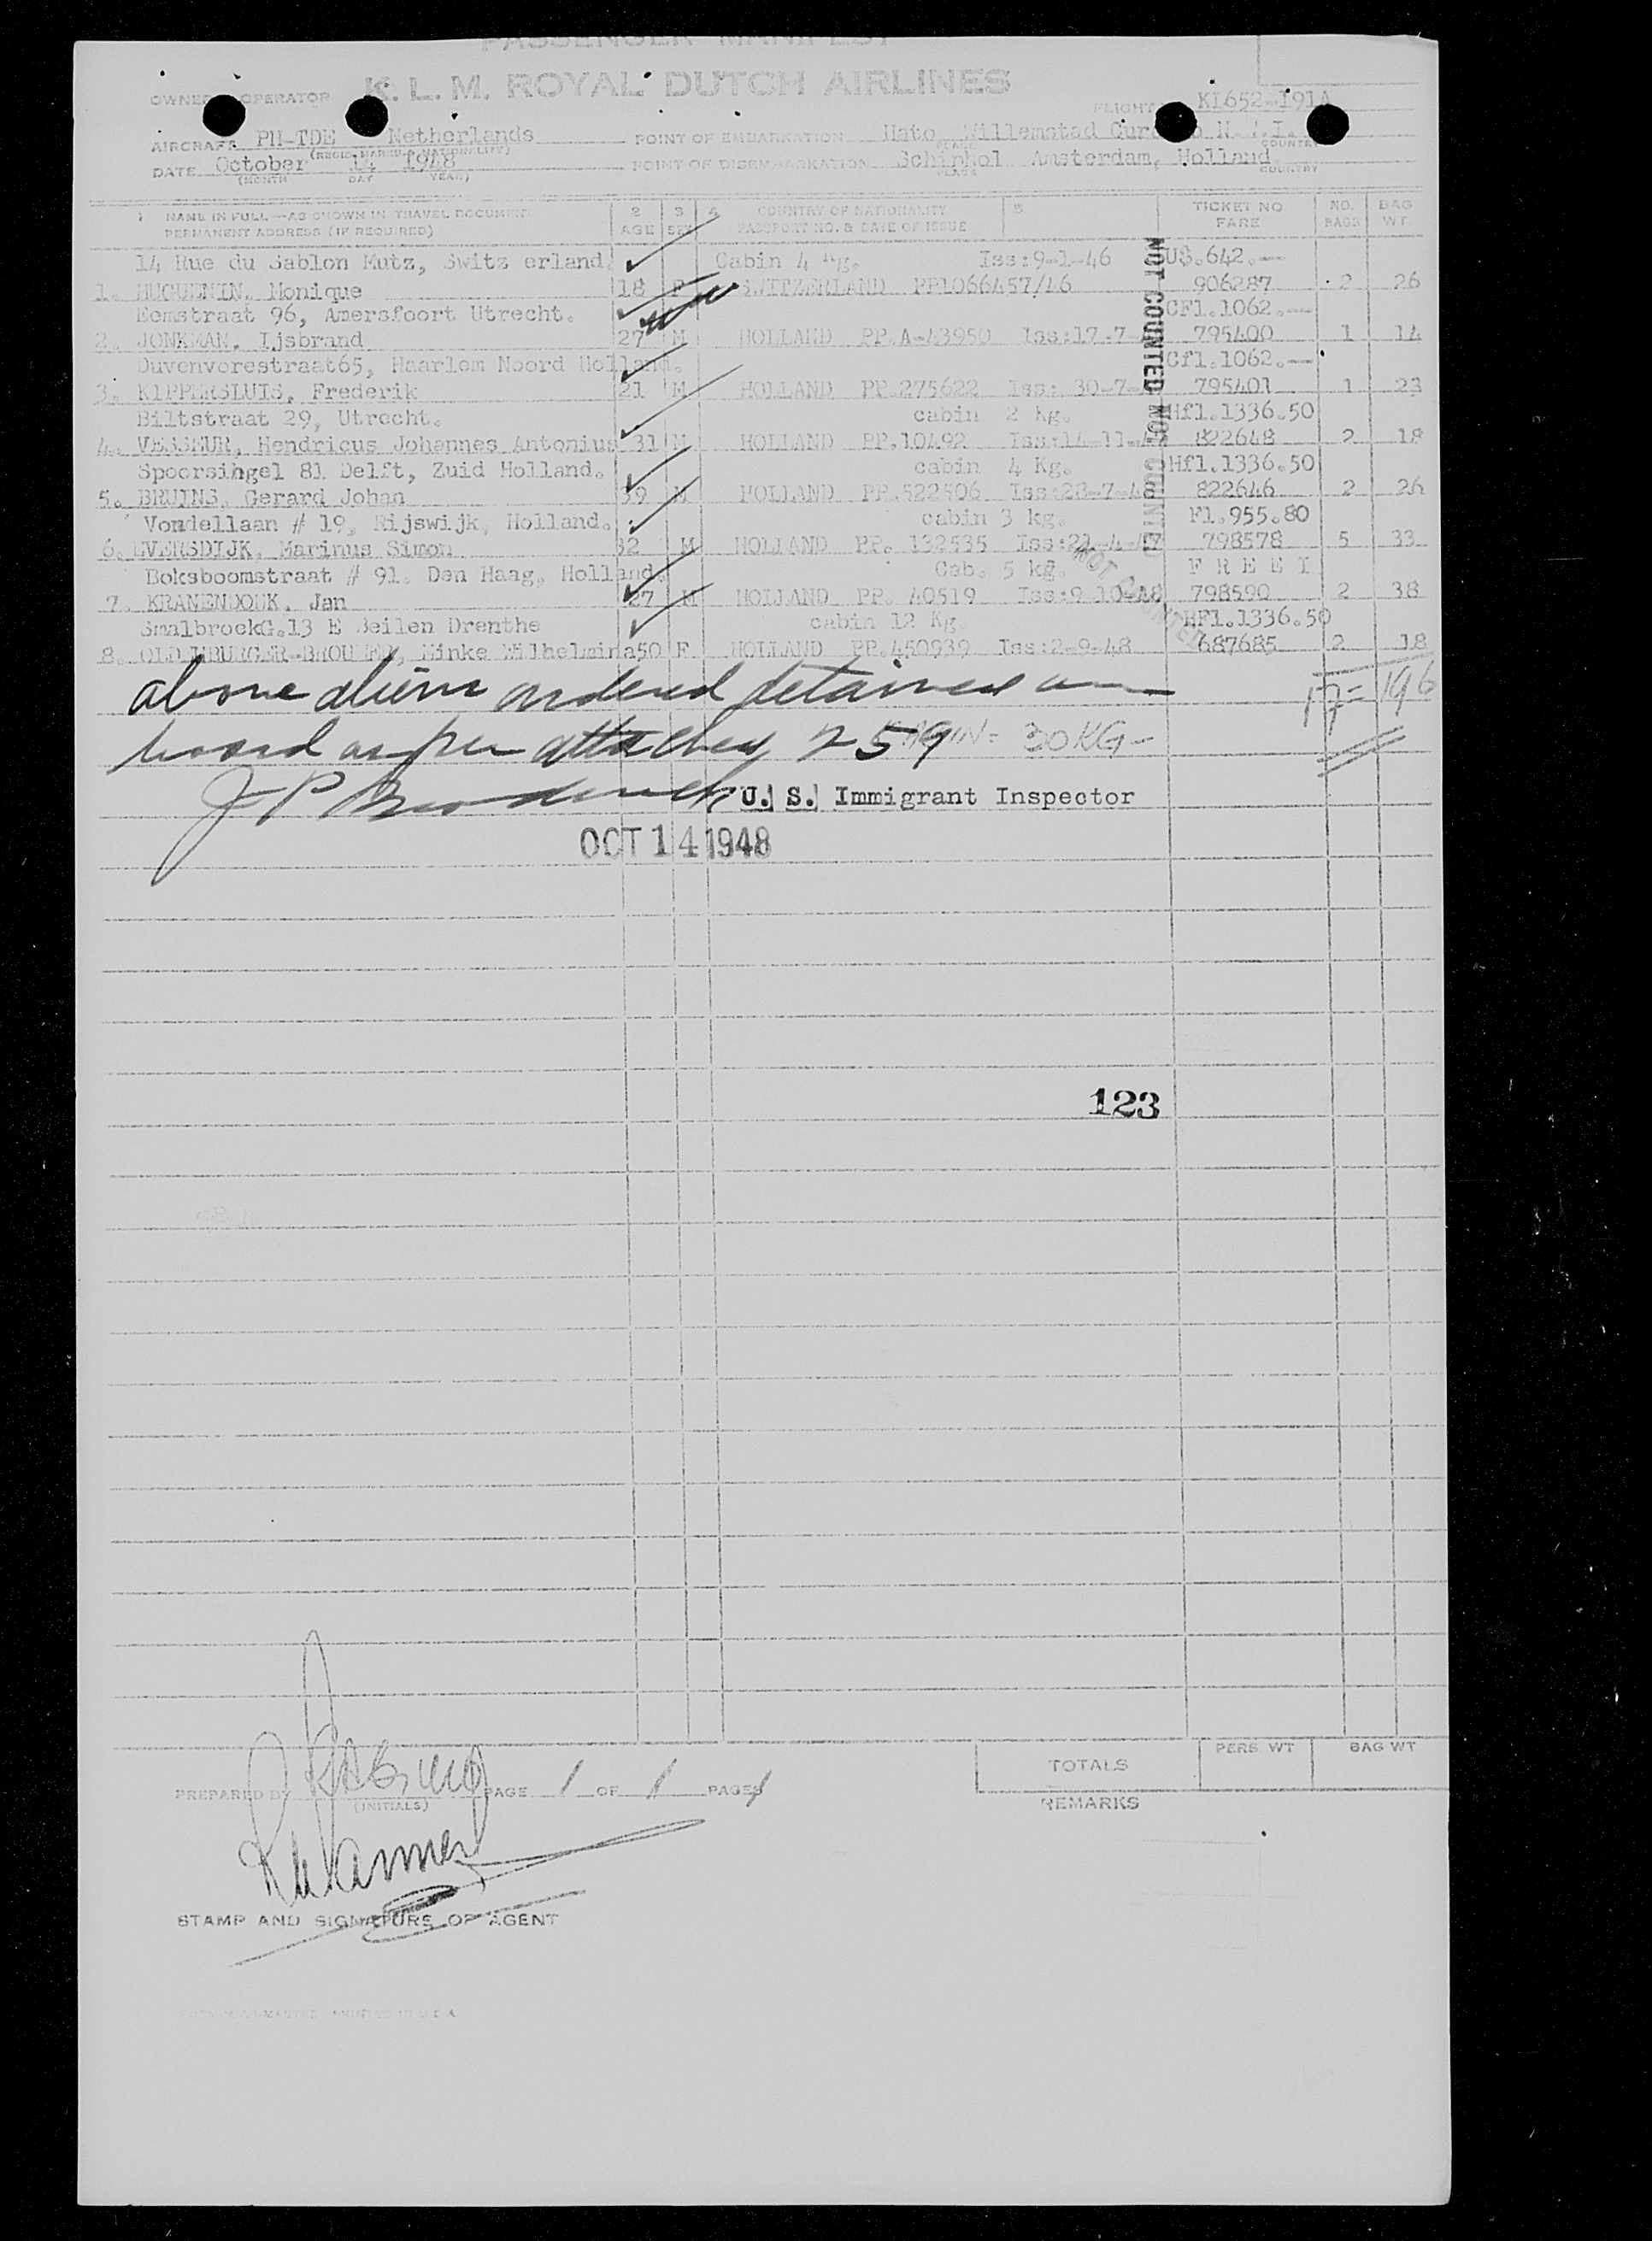 PASSENGER MANIFEST
K. L. M. ROYAL DUTCH AIRLINES
OWNER OPERATOR
FLIGHT KL652-191A
AIRCRAFT PH-TDE Netherlands POINT OF EMBARKATION Hato Willemstad N.W.I.
(REGIS. MARKS & NATIONALITY) PLACE COUNTRY
DATE October 14 1948 POINT OF DISEMBARKATION Schiphol Amsterdam, Holland
(MONTH DAY YEAR) PLACE COUNTRY
1 NAME IN FULL—AS SHOWN IN TRAVEL DOCUMENT 2 3 4 COUNTRY OF NATIONALITY 5 TICKET NO NO. BAG
PERMANENT ADDRESS (IF REQUIRED) AGE SEX PASSPORT NO. & DATE OF ISSUE FARE BAGS WT.
14 Rue du Sablon Mutz, Switz erland. Cabin 4 Kg. Iss:9-1-46 U$.642.--
1. HUGUENIN, Monique 18 F SWITZERLAND PP1066457/46 906287 2 26
Eemstraat 96, Amersfoort Utrecht. CFl.1062.--
2. JONKMAN, Ijsbrand 27 M HOLLAND PP.A-43950 Iss:17-7- 795400 1 14
Duvenvorestraat65, Haarlem Noord Holland. Cfl.1062.--
3. KIPPERSLUIS, Frederik 21 M HOLLAND PP.275622 Iss: 30-7- 795401 1 23
Biltstraat 29, Utrecht. cabin 2 Kg. Hfl.1336.50
4. VESSEUR, Hendricus Johannes Antonius 31 M HOLLAND PP.10492 Iss:14-11- 822648 2 18
Spoorsingel 81 Delft, Zuid Holland. cabin 4 Kg. Hfl.1336.50
5. BRUINS, Gerard Johan 39 M HOLLAND PP.522506 Iss:28-7-48 822646 2 26
Vondellaan # 19, Rijswijk, Holland. cabin 3 kg. Fl.955.80
6. EVERSDIJK, Marinus Simon 32 M HOLLAND PP. 132535 Iss:21-4-47 798578 5 33
Boksboomstraat # 91. Den Haag, Holland. Cab. 5 kg. F R E E I
7. KRANENDONK, Jan 27 M HOLLAND PP. 40519 Iss:9 10-48 798590 2 38
SmalbroekG.13 E Beilen Drenthe cabin 12 Kg. HFl.1336.50
8. OLDENBURGER-BROUWER, Minke Wilhelmina50 F HOLLAND PP.450939 Iss:2-9-48 687685 2 18
NOT COUNTED NOT COUNTED
NOT COUNTED
above aliens ordered detained on 17= 196
board as per attached 259 30 KG-
U. S. Immigrant Inspector
OCT 14 1948
123
TOTALS PERS WT BAG WT
PREPARED BY PAGE 1 OF 1 PAGES
(INITIALS)
REMARKS
STAMP AND SIGNATURE OF AGENT